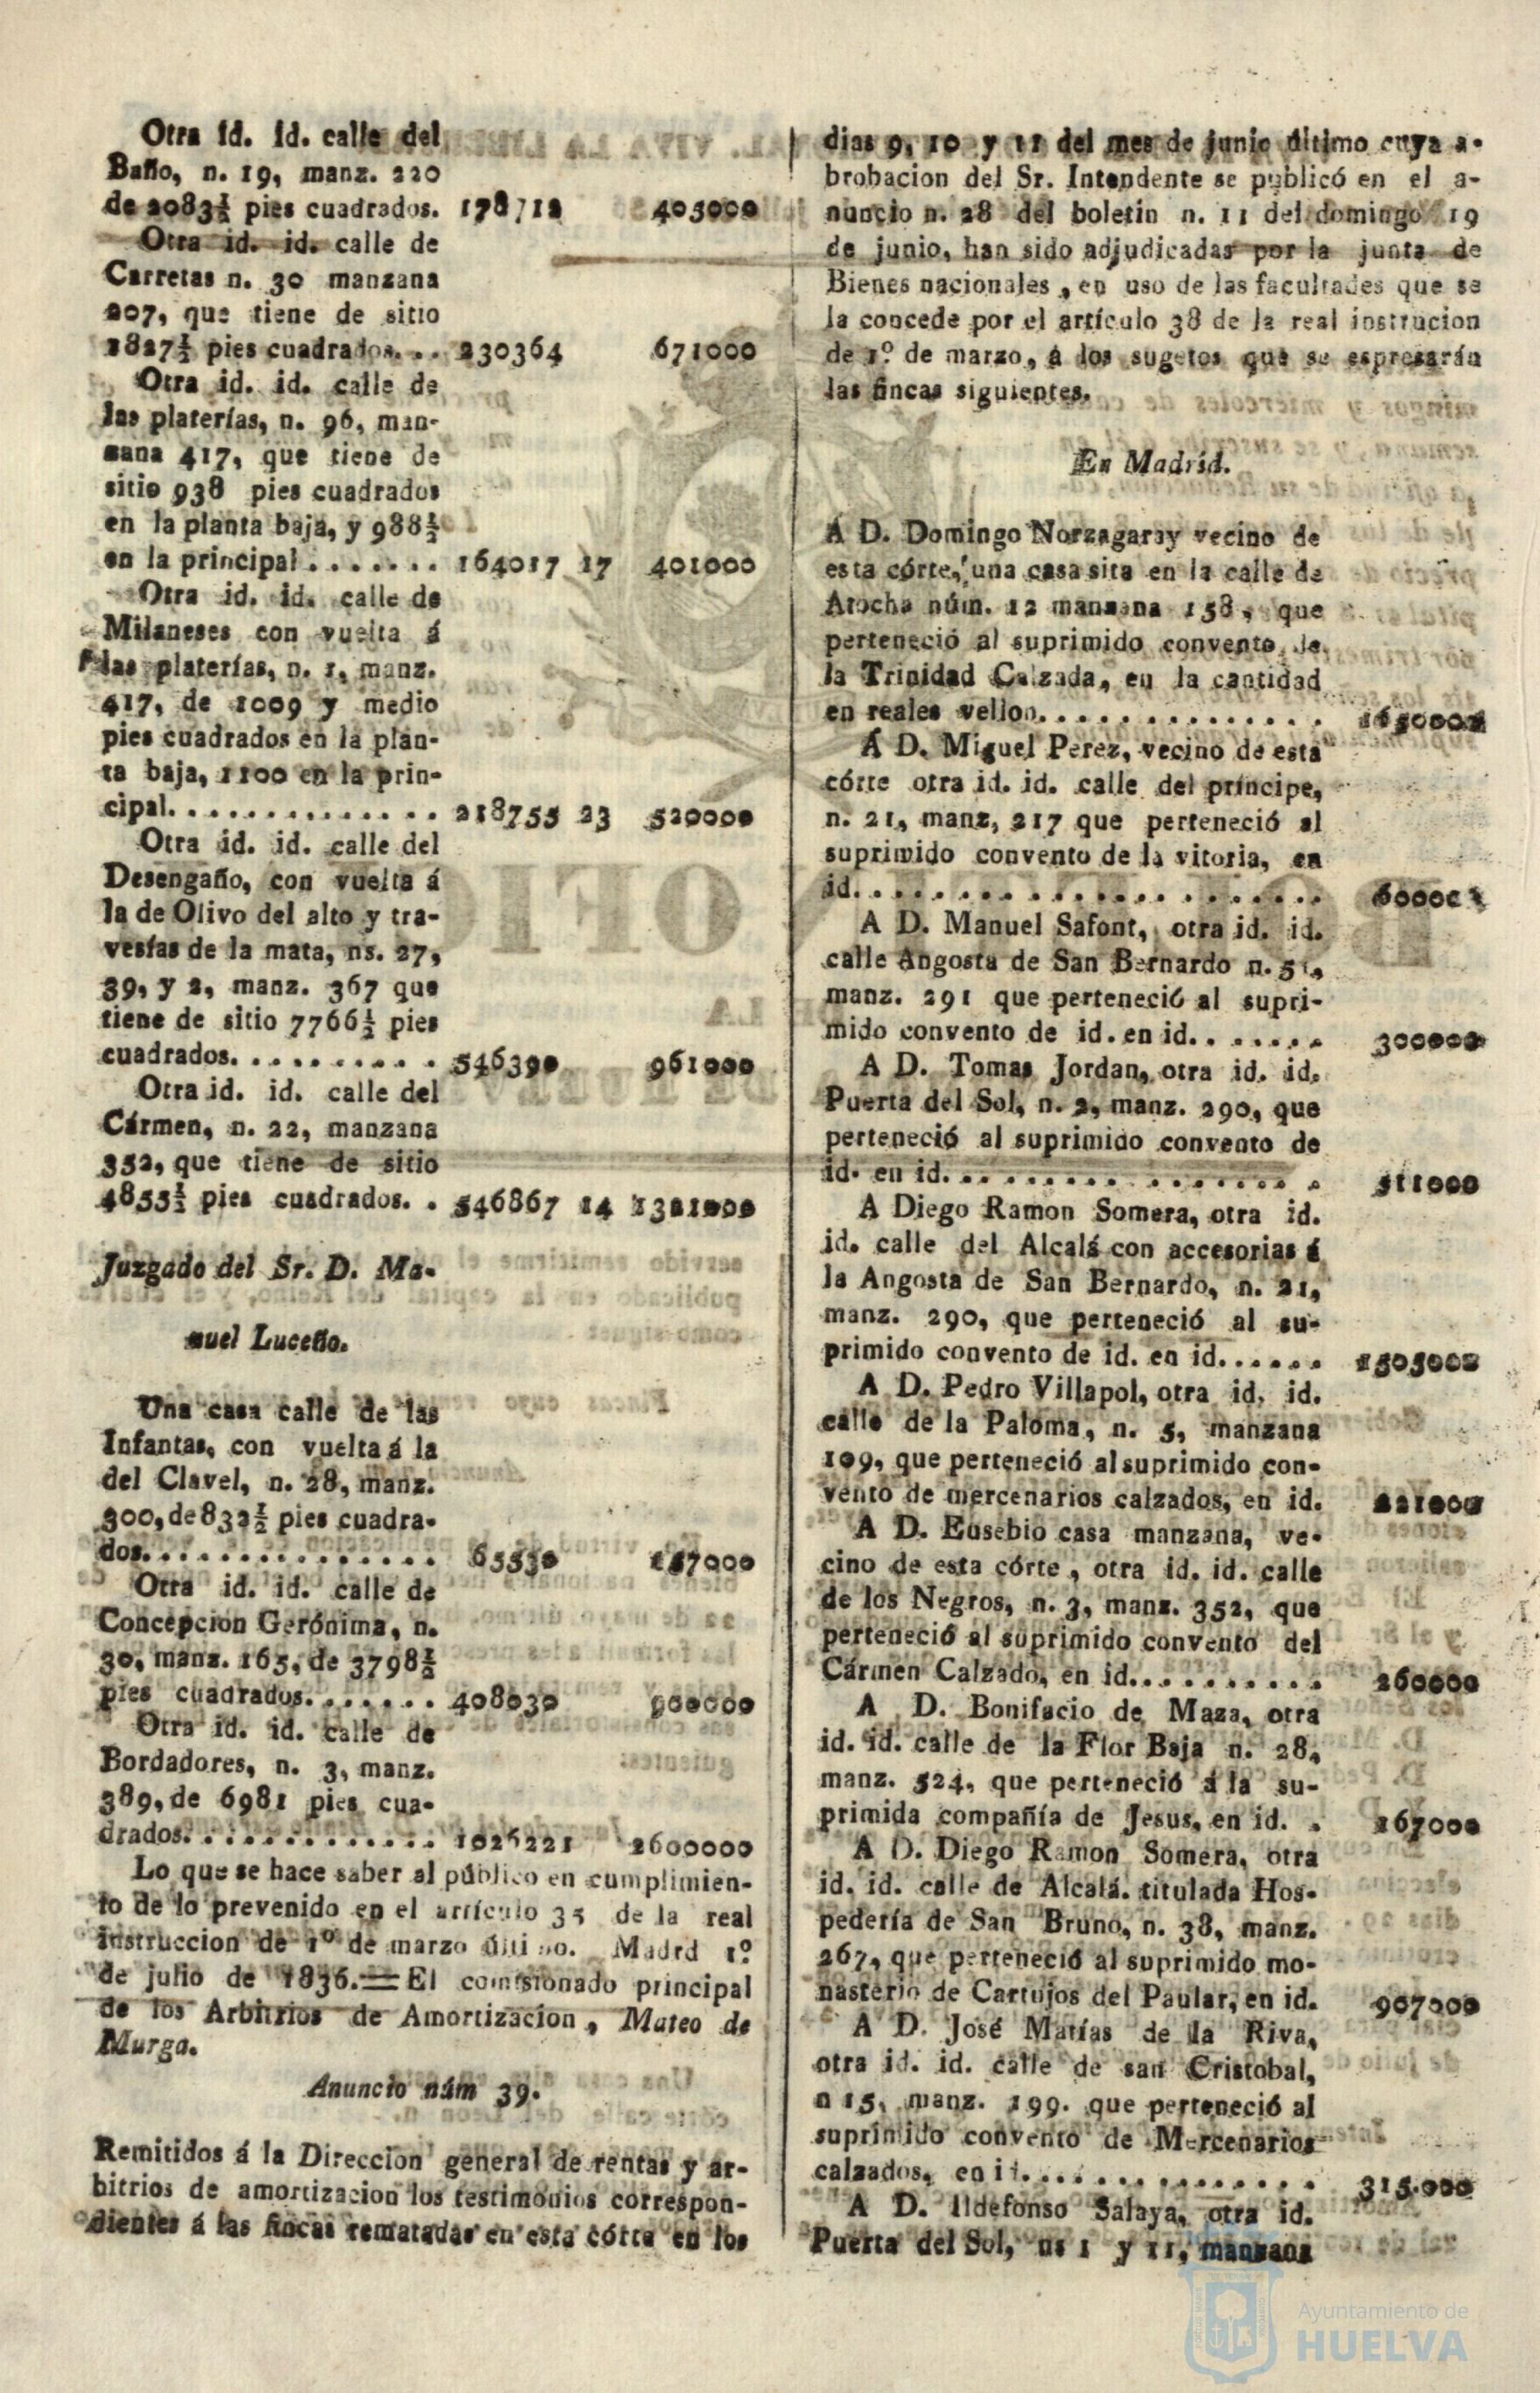 Otra id. id. calle del
Baño, n. 19, manz. 220
de 2083½ pies cuadrados. 178712 405000
Otra id. id. calle de
Carretas n. 30 manzana
207, que tiene de sitio
1827½ pies cuadrados... 230364 671000
Otra id. id. calle de
las platerías, n. 96, man-
zana 417, que tiene de
sitio 938 pies cuadrados
en la planta baja, y 988½
en la principal....... 164017 17 401000
Otra id. id. calle de
Milaneses con vuelta á
las platerías, n. 1, manz.
417, de 1009 y medio
pies cuadrados en la plan-
ta baja, 1100 en la prin-
cipal............. 218755 23 520000
Otra id. id. calle del
Desengaño, con vuelta á
la de Olivo del alto y tra-
vesías de la mata, ns. 27,
39, y 2, manz. 367 que
tiene de sitio 7766½ pies
cuadrados.......... 546390 961000
Otra id. id. calle del
Cármen, n. 22, manzana
352, que tiene de sitio
4855½ pies cuadrados.. 546867 14 1321000
Juzgado del Sr. D. Ma-
nuel Luceño.
Una casa calle de las
Infantas, con vuelta á la
del Clavel, n. 28, manz.
300, de 832½ pies cuadra-
dos.............. 65530 157000
Otra id. id. calle de
Concepcion Gerónima, n.
30, manz. 165, de 3798½
pies cuadrados....... 408030 900000
Otra id. id. calle de
Bordadores, n. 3, manz.
389, de 6981 pies cua-
drados............. 1026221 2600000
Lo que se hace saber al público en cumplimien-
to de lo prevenido en el artículo 35 de la real
instruccion de 1º de marzo último. Madrd 1º
de julio de 1836.=El comisionado principal
de los Arbitrios de Amortizacion, Mateo de
Murga.
Anuncio núm 39.
Remitidos á la Direccion general de rentas y ar-
bitrios de amortizacion los testimonios correspon-
dientes á las fincas rematadas en esta córte en los
dias 9, 10 y 11 del mes de junio último cuya a-
brobacion del Sr. Intendente se publicó en el a-
nuncio n. 28 del boletin n. 11 del domingo 19
de junio, han sido adjudicadas por la junta de
Bienes nacionales, en uso de las facultades que se
la concede por el artículo 38 de la real instrucion
de 1º de marzo, á los sugetos que se espresarán
las fincas siguientes.
En Madrid.
Á D. Domingo Norzagaray vecino de
esta córte, una casa sita en la calle de
Atocha núm. 12 manzana 158, que
perteneció al suprimido convento de
la Trinidad Calzada, en la cantidad
en reales vellon.............. 1650000
Á D. Miguel Perez, vecino de esta
córte otra id. id. calle del príncipe,
n. 21, manz, 217 que perteneció al
suprimido convento de la vitoria, en
id...................... 60000
A D. Manuel Safont, otra id. id.
calle Angosta de San Bernardo n. 51,
manz. 291 que perteneció al supri-
mido convento de id. en id........ 300000
A D. Tomas Jordan, otra id. id.
Puerta del Sol, n. 2, manz. 290, que
perteneció al suprimido convento de
id. en id................. 511000
A Diego Ramon Somera, otra id.
id. calle del Alcalá con accesorias á
la Angosta de San Bernardo, n. 21,
manz. 290, que perteneció al su-
primido convento de id. en id...... 1505000
A D. Pedro Villapol, otra id. id.
calle de la Paloma, n. 5, manzana
109, que perteneció al suprimido con-
vento de mercenarios calzados, en id. 221000
A D. Eusebio casa manzana, ve-
cino de esta córte, otra id. id. calle
de los Negros, n. 3, manz. 352, que
perteneció al suprimido convento del
Cármen Calzado, en id.......... 260000
A D. Bonifacio de Maza, otra
id. id. calle de la Flor Baja n. 28,
manz. 524, que perteneció á la su-
primida compañía de Jesus, en id. . 167000
A D. Diego Ramon Somera, otra
id. id. calle de Alcalá. titulada Hos-
pedería de San Bruno, n. 38, manz.
267, que perteneció al suprimido mo-
nasterio de Cartujos del Paular, en id. 907000
A D. José Matías de la Riva,
otra id. id. calle de san Cristobal,
n 15, manz. 199. que perteneció al
suprimido convento de Mercenarios
calzados, en id............... 315.000
A D. Ildefonso Salaya, otra id.
Puerta del Sol, ns 1 y 11, manzana
Ayuntamiento de
HUELVA